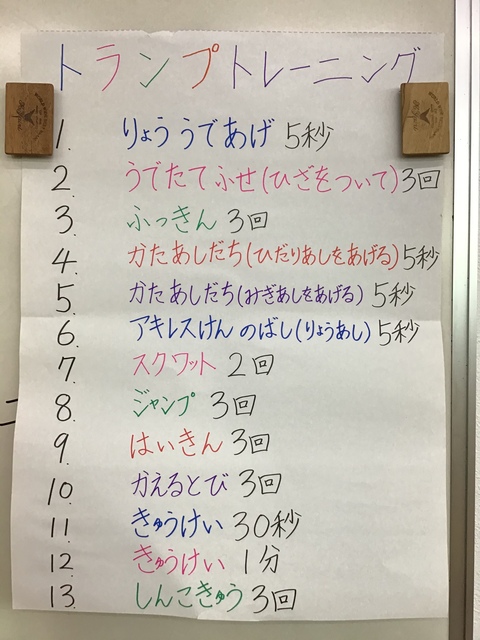 トランプトレーニング
1. りょううであげ 5秒
2. うでたてふせ(ひざをついて)3回
3. ふっきん 3回
4. かたあしだち(ひだりあしをあげる)5秒
5. かたあしだち(みぎあしをあげる) 5秒
6. アキレスけんのばし(りょうあし) 5秒
7. スクワット 2回
8. ジャンプ 3回
9. はいきん 3回
10. かえるとび 3回
11. きゅうけい 30秒
12. きゅうけい 1分
13. しんこきゅう 3回